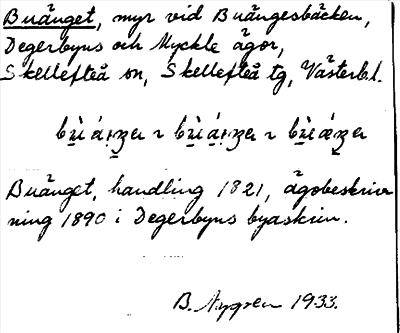 Buänget, myr vid Buängesbäcken,
Degerbyns och Myckle ägor,
Skellefteå sn, Skellefteå tg, Västerb.l.
Buänget, handling 1821, ägobeskriv
ning 1890 i Degerbyns byaskrin.
B. Nygren 1933.